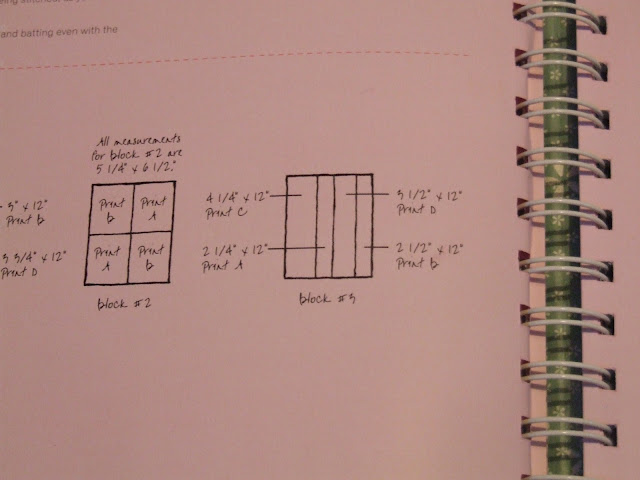 and batting even with the
All measurements
for block #2 are
5 1/4" x 6 1/2."
3" x 12"
Print B
3 3/4" x 12"
Print D
Print
B
Print
A
Print
A
Print
B
block #2
4 1/4" x 12"
Print C
2 1/4" x 12"
Print A
3 1/2" x 12"
Print D
2 1/2" x 12"
Print B
block #3